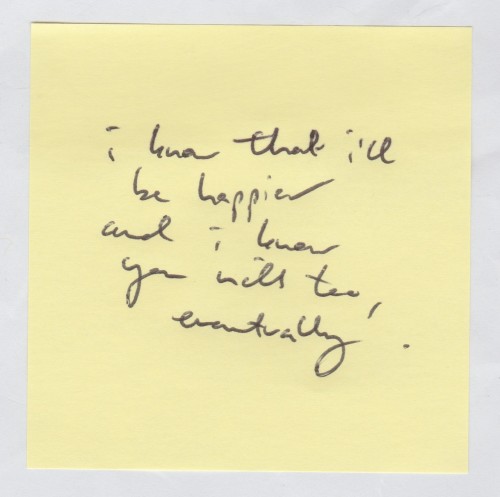 i know that i'll
be happier
and i know
you will too,
eventually.